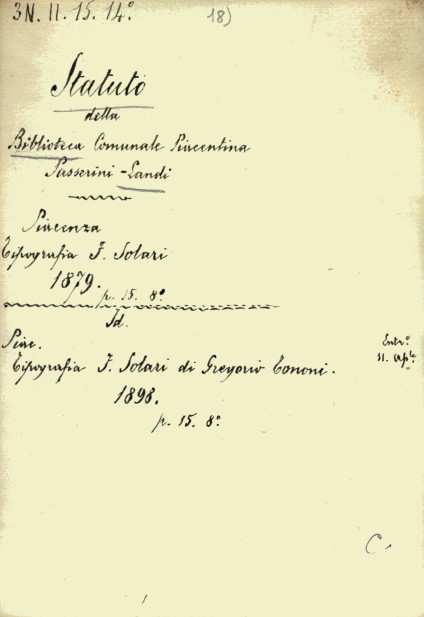 3N. II. 15. 14º
18)
Statuto
della
Biblioteca Comunale Piacentina
Passerini-Landi
Piacenza
Tipografia F. Solari
1879.
p. 15. 8º
Id.
Piac.
Tipografia F. Solari di Gregorio Tononi.
1898.
p. 15. 8º
Entrº
11. Aple
C.